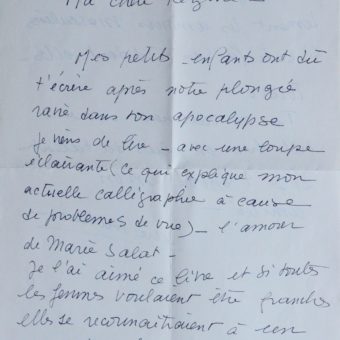 Ma chère Régine -
Mes petits-enfants ont dû
t'écrire après notre plongée
ravie dans ton apocalypse
Je viens de lire - avec une loupe
éclairante (ce qui explique mon
actuelle calligraphie à cause
de problèmes de vue) - l'amour
de Marie Salat -
Je l'ai aimé ce livre et si toutes
les femmes voulaient être franches
elles se reconnaîtraient à cent